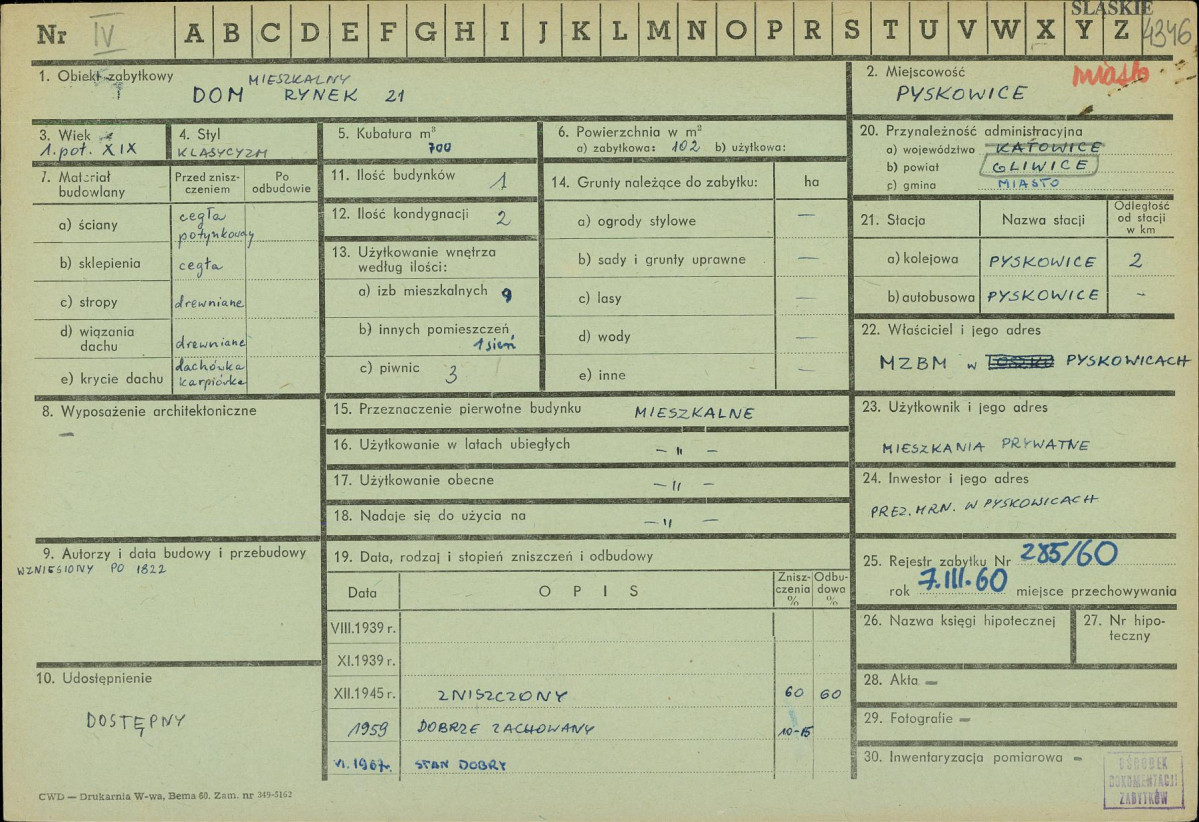 Nr IV A B C D E F G H I J K L M N O P R S T U V W X Y Z ŚLĄSKIE 4346
1. Obiekt zabytkowy
MIESZKALNY
DOM RYNEK 21
2. Miejscowość miasto
PYSKOWICE
3. Wiek
1. poł. XIX
4. Styl
KLASYCYZM
5. Kubatura m³
700
6. Powierzchnia w m²
a) zabytkowa: 102 b) użytkowa:
7. Materiał budowlany
Przed zniszczeniem
Po odbudowie
a) ściany cegła
potynkowany
b) sklepienia cegła
c) stropy drewniane
d) wiązania
dachu drewniane
e) krycie dachu dachówka
karpiówka
8. Wyposażenie architektoniczne
–
9. Autorzy i data budowy i przebudowy
WZNIESIONY PO 1822
10. Udostępnienie
DOSTĘPNY
11. Ilość budynków 1
12. Ilość kondygnacji 2
13. Użytkowanie wnętrza
według ilości:
a) izb mieszkalnych 9
b) innych pomieszczeń
1 sień
c) piwnic 3
14. Grunty należące do zabytku: ha
a) ogrody stylowe –
b) sady i grunty uprawne –
c) lasy –
d) wody –
e) inne –
15. Przeznaczenie pierwotne budynku MIESZKALNE
16. Użytkowanie w latach ubiegłych – " –
17. Użytkowanie obecne – " –
18. Nadaje się do użycia na – " –
19. Data, rodzaj i stopień zniszczeń i odbudowy
Data OPIS Znisz-
czenia
% Odbu-
dowa
%
VIII.1939 r.
XI.1939 r.
XII.1945 r. ZNISZCZONY 60 60
1959 DOBRZE ZACHOWANY 10-15
VI.1967r. STAN DOBRY
20. Przynależność administracyjna
a) województwo KATOWICE
b) powiat GLIWICE
c) gmina MIASTO
21. Stacja Nazwa stacji Odległość
od stacji
w km
a) kolejowa PYSKOWICE 2
b) autobusowa PYSKOWICE –
22. Właściciel i jego adres
MZBM w PYSKOWICACH
23. Użytkownik i jego adres
MIESZKANIA PRYWATNE
24. Inwestor i jego adres
PREZ. MRN. W PYSKOWICACH
25. Rejestr zabytku Nr 285/60
rok 7.III.60 miejsce przechowywania
26. Nazwa księgi hipotecznej
27. Nr hipo-
teczny
28. Akta –
29. Fotografie –
30. Inwentaryzacja pomiarowa –
OŚRODEK
DOKUMENTACJI
ZABYTKÓW
CWD — Drukarnia W-wa, Bema 60. Zam. nr 349-5162